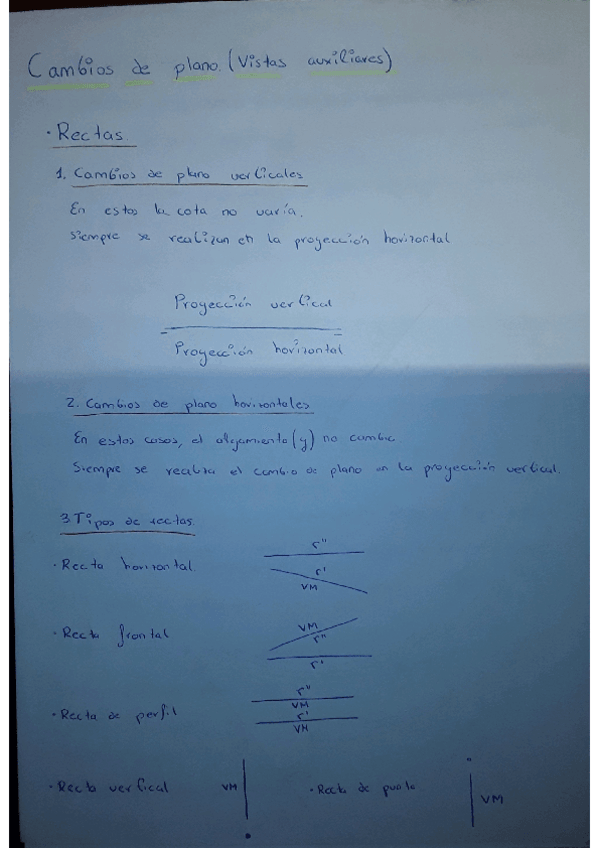 Cambios de plano. (Vistas auxiliares)
· Rectas.
1. Cambios de plano verticales
En estos la cota no varía.
Siempre se realizan en la proyección horizontal
Proyección vertical
Proyección horizontal
2. Cambios de plano horizontales
En estos casos, el alejamiento (y) no cambia.
Siempre se realiza el cambio de plano en la proyección vertical.
3. Tipos de rectas.
· Recta horizontal.
r''
r'
VM
· Recta frontal
VM
r''
r'
· Recta de perfil
r''
VM
r'
VM
· Recta vertical
VM
· Recta de punta
VM